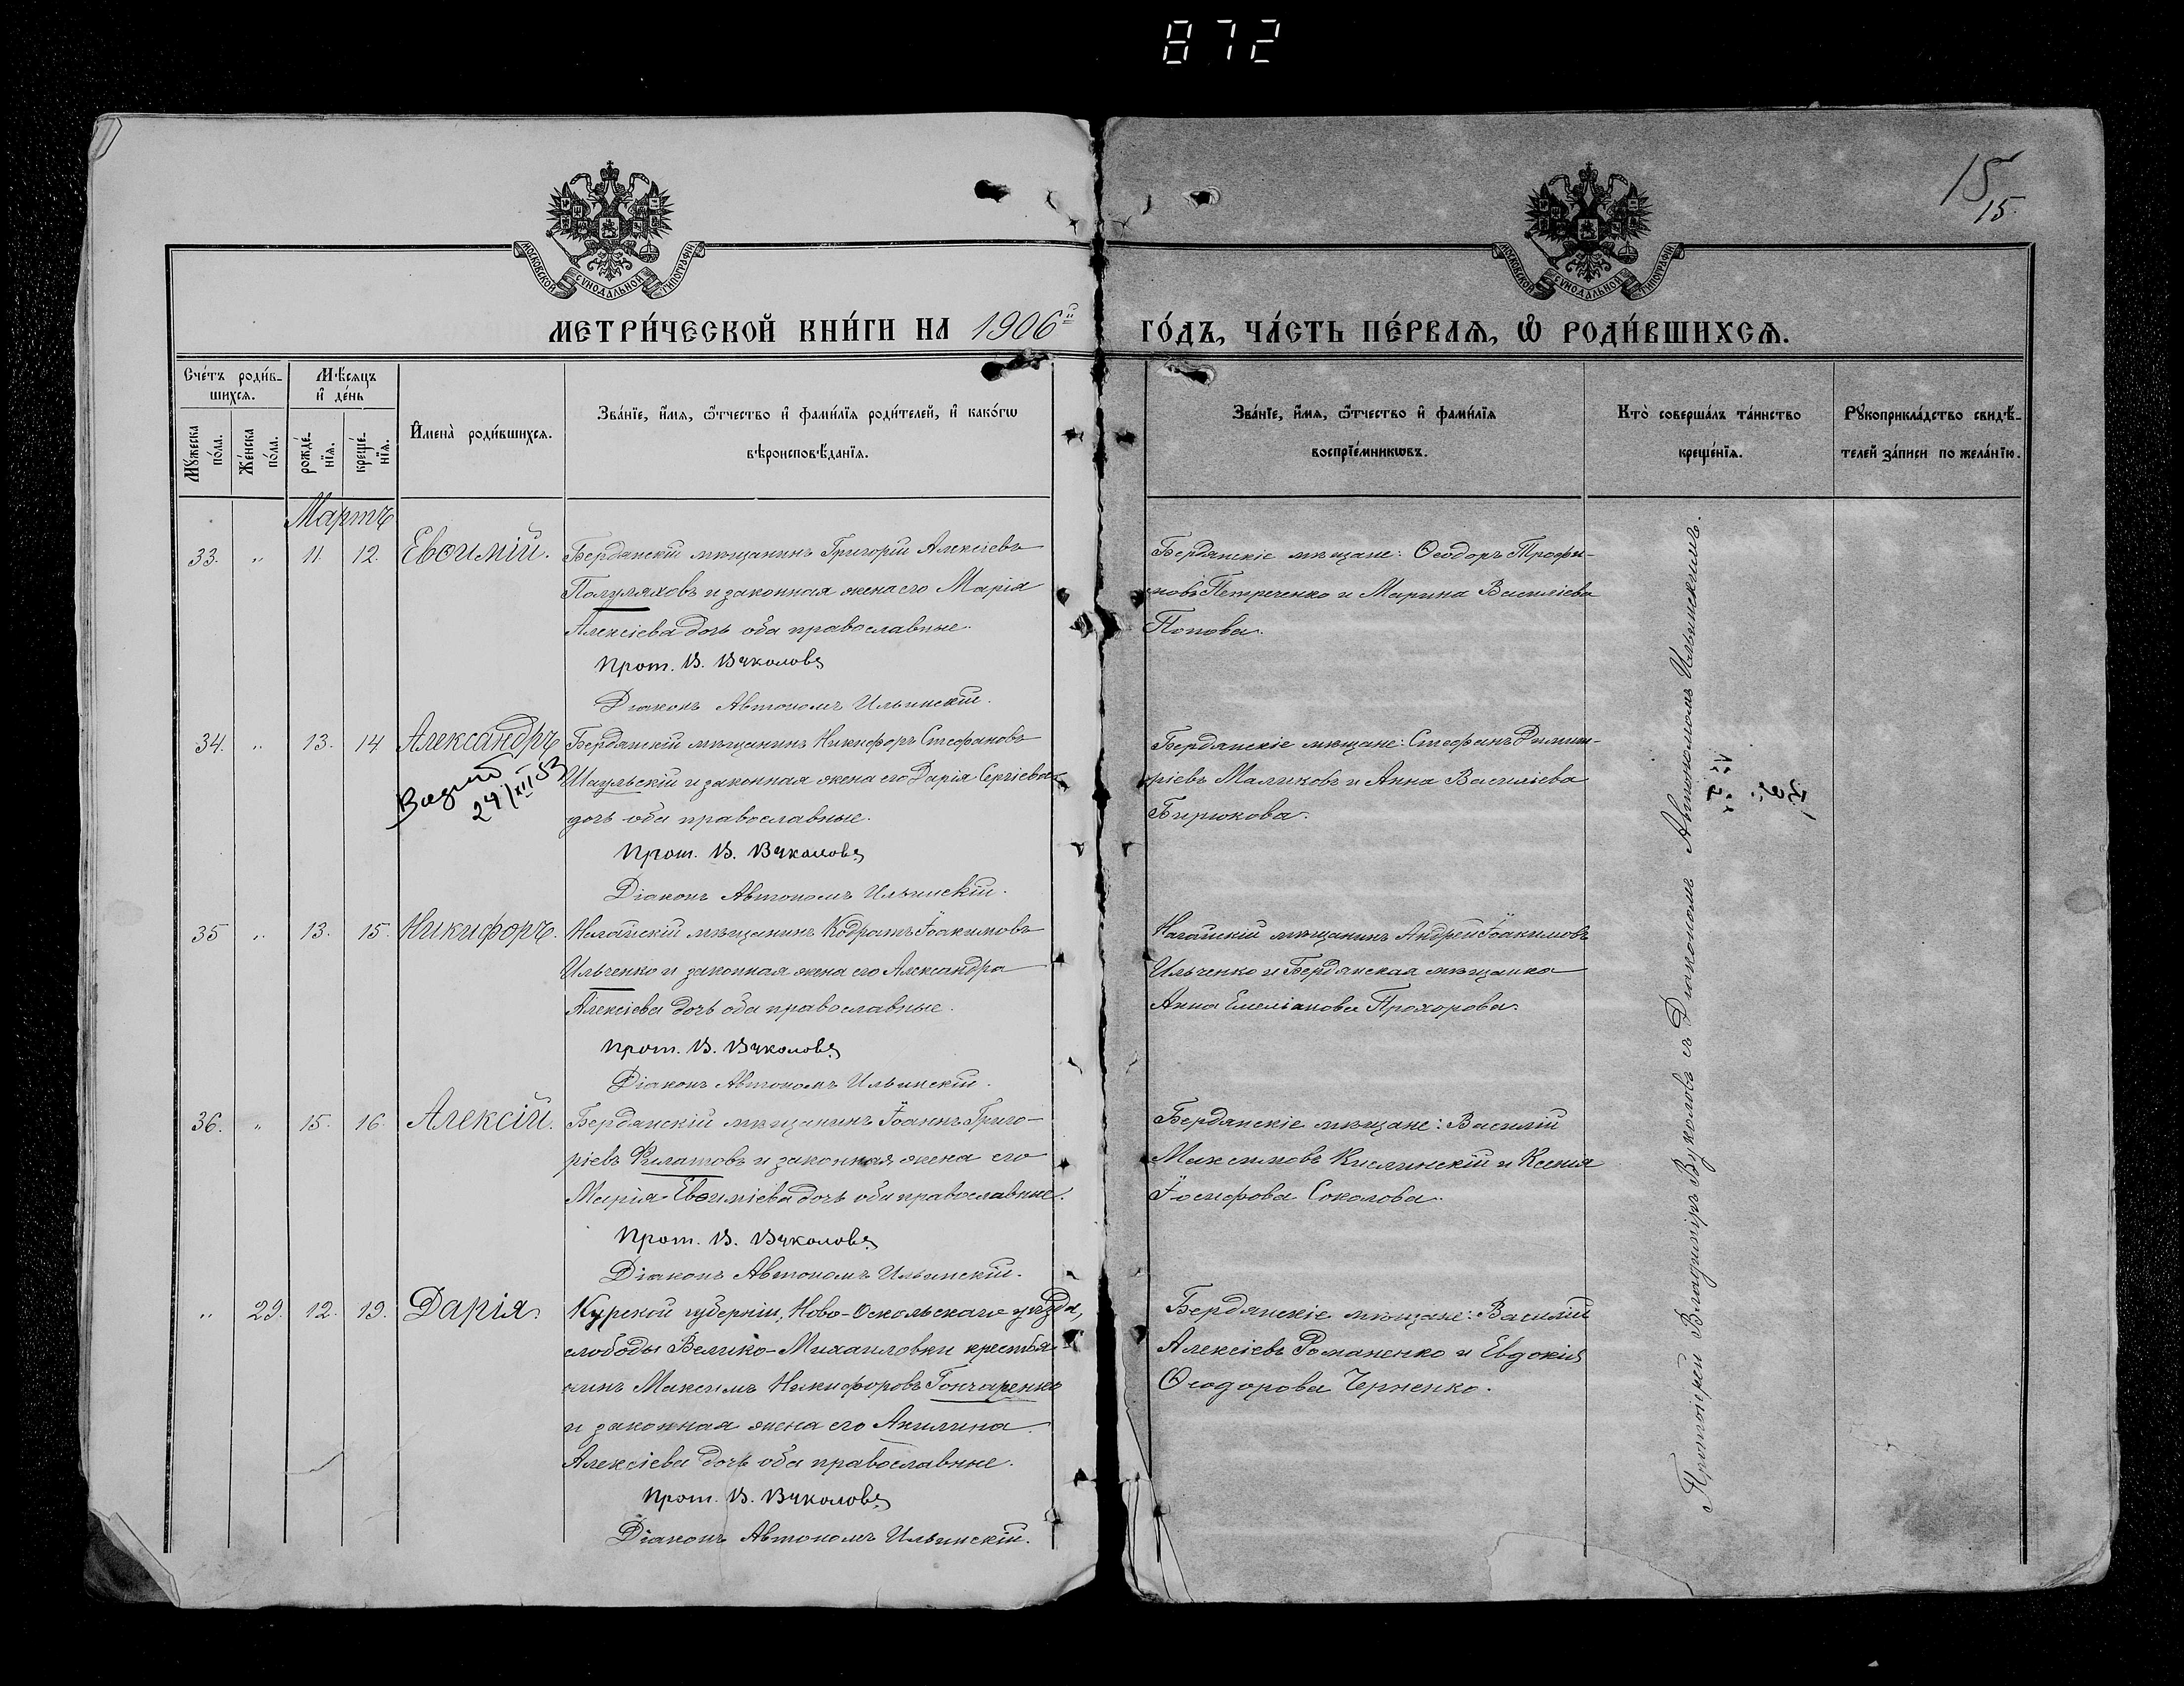 872
15
15.
МОСКОВСКОЙ СУНОДАЛЬНОЙ ТИПОГРАФІИ
МОСКОВСКОЙ СУНОДАЛЬНОЙ ТИПОГРАФІИ
МЕТРИ́ЧЕСКОЙ КНИ́ГИ НА 1906й ГО́ДЪ, ЧА́СТЬ ПЕ́РВАЯ, Ѡ РОДИ́ВШИХСѦ.
Сче́тъ роди́в-
шихсѧ.
Мꙋ́жеска по́ла.
Же́нска по́ла.
Мѣ́сѧцъ
и҆ де́нь
рожде́-
нїѧ.
креще́-
нїѧ.
И҆мена̀ роди́вшихсѧ.
Зва́нїе, и҆́мѧ, ѻ҆́тчество и҆ фами́лїѧ роди́телей, и҆ како́гѡ
вѣроисповѣ́данїѧ.
Зва́нїе, и҆́мѧ, ѻ҆́тчество и҆ фами́лїѧ
воспрїе́мникѡвъ.
Кто̀ соверша́лъ та́инство
креще́нїѧ.
Рꙋкоприкла́дство свидѣ́-
телей за́писи по жела́нїю.
Мартъ
33. " 11. 12. Евѳимій. Бердянскій мѣщанинъ Григорій Алексіевъ
Полуляховъ и законная жена его Марія
Алексіева дочь оба православные.
Прот. В. Вуколовъ
Діаконъ Автономъ Ильинскій.
Бердянскіе мѣщане: Ѳеодоръ Трофи-
мовъ Петреченко и Марина Василіева
Попова.
34. " 13. 14 Александръ Бердянскій мѣщанинъ Никифоръ Стефановъ
Шаульскій и законная жена его Дарія Сергіева
дочь оба православные.
24/XII 53
Прот. В. Вуколовъ
Діаконъ Автономъ Ильинскій.
Бердянскіе мѣщане: Стефанъ Димит-
ріевъ Маликовъ и Анна Василіева
Бирюкова.
35 " 13. 15. Никифоръ. Ногайскій мѣщанинъ Кодратъ Іоакимовъ
Ильченко и законная жена его Александра
Алексіева дочь оба православные.
Прот. В. Вуколовъ
Діаконъ Автономъ Ильинскій.
Ногайскій мѣщанинъ Андрей Іоакимовъ
Ильченко и Бердянская мѣщанка
Анна Емеліанова Прохорова.
36. " 15. 16. Алексій. Бердянскій мѣщанинъ Іоаннъ Григо-
ріевъ Филатовъ и законная жена его
Марія Евѳиміева дочь оба православные.
Прот. В. Вуколовъ
Діаконъ Автономъ Ильинскій.
Бердянскіе мѣщане: Василій
Максимовъ Кислинскій и Ксенія
Іосифова Соколова.
" 29. 12. 19. Дарія. Курской губерніи, Ново-Оскольскаго уѣзда,
слободы Велико-Михаиловки крестья-
нинъ Максимъ Никифоровъ Гончаренко
и законная жена его Акилина
Алексіева дочь оба православные.
Прот. В. Вуколовъ
Діаконъ Автономъ Ильинскій.
Бердянскіе мѣщане: Василій
Алексіевъ Романенко и Евдокія
Ѳеодорова Черненко.
Протоіерей Владиміръ Вуколовъ съ Діакономъ Автономомъ Ильинскимъ.